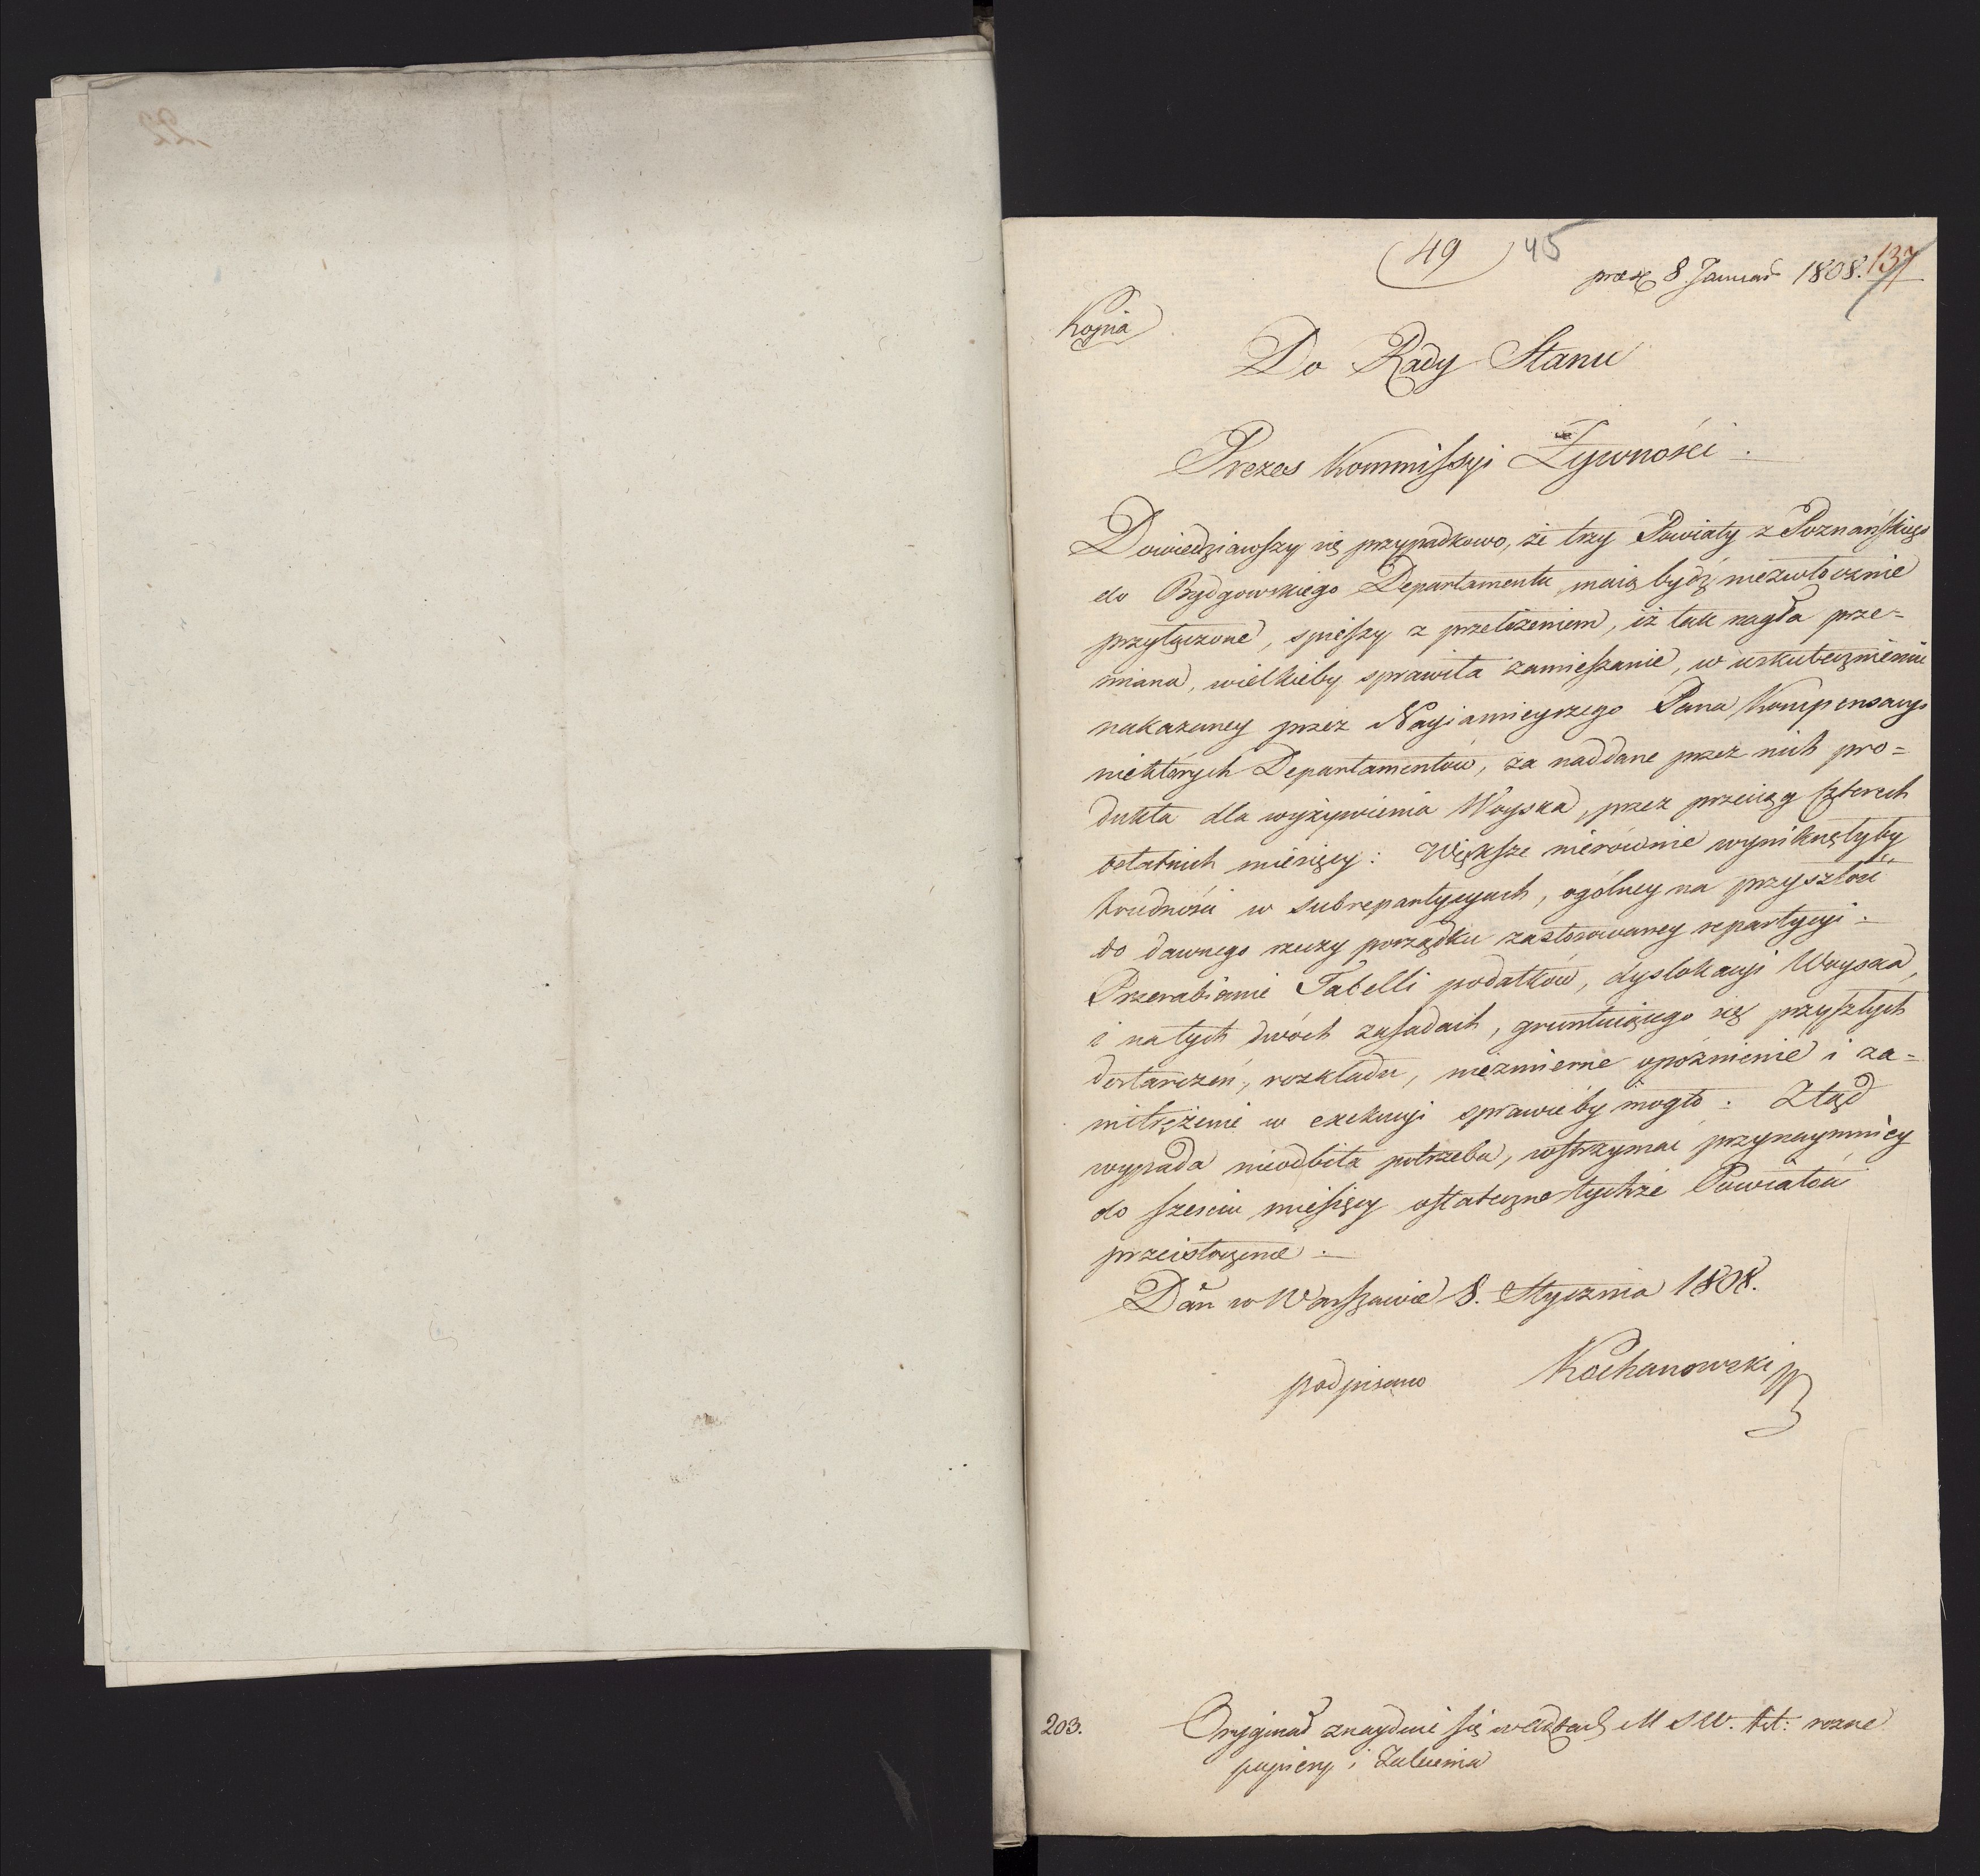 22
(49) 45
praes 8 Januar 1808. 137
Kopia
Do Rady Stanu
Prezes Kommissyi Żywności.
Dowiedziawszy się przypadkowo, że trzy Powiaty z Poznańskiego
do Bydgowskiego Departamentu, maią bydź niezwłocznie
przyłączone, spieszy z przełożeniem, iż tak nagła prze=
miana, wielkieby sprawiła zamieszanie, w uskutecznieniu
nakazaney przez Nayiaśnieyszego Pana Kompensacyi
niektórych Departamentów, za naddane przez nich pro=
dukta dla wyżywienia Woyska, przez przeciąg czterech
ostatnich miesięcy: Większe nierównie wyniknęłyby
trudności w subrepartycyach, ogólney na przyszłość
do dawnego rzeczy porządku zastosowaney repartycyi.
Przerabianie Tabelli podatków, dyslokacyi Woyska,
i na tych dwóch zasadach, gruntuiącego się przyszłych
dostarczeń, rozkładu, niezmierne opóźnienie i za=
mitrężenie w exekucyi sprawićby mogło. Ztąd
wypada nieodbita potrzeba, wstrzymać przynaymniey
do sześciu miesięcy ostateczne tychże Powiatów
przeistoczenie.
Dan w Warszawie 8. Stycznia 1808.
podpisano Kochanowski
203. Oryginał znayduie się w Aktach M S W. tit: rozne
papiery i Zalecenia